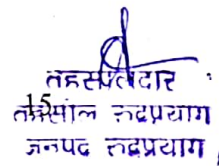 तहसीलदार
15
तहसील रुद्रप्रयाग
जनपद रुद्रप्रयाग